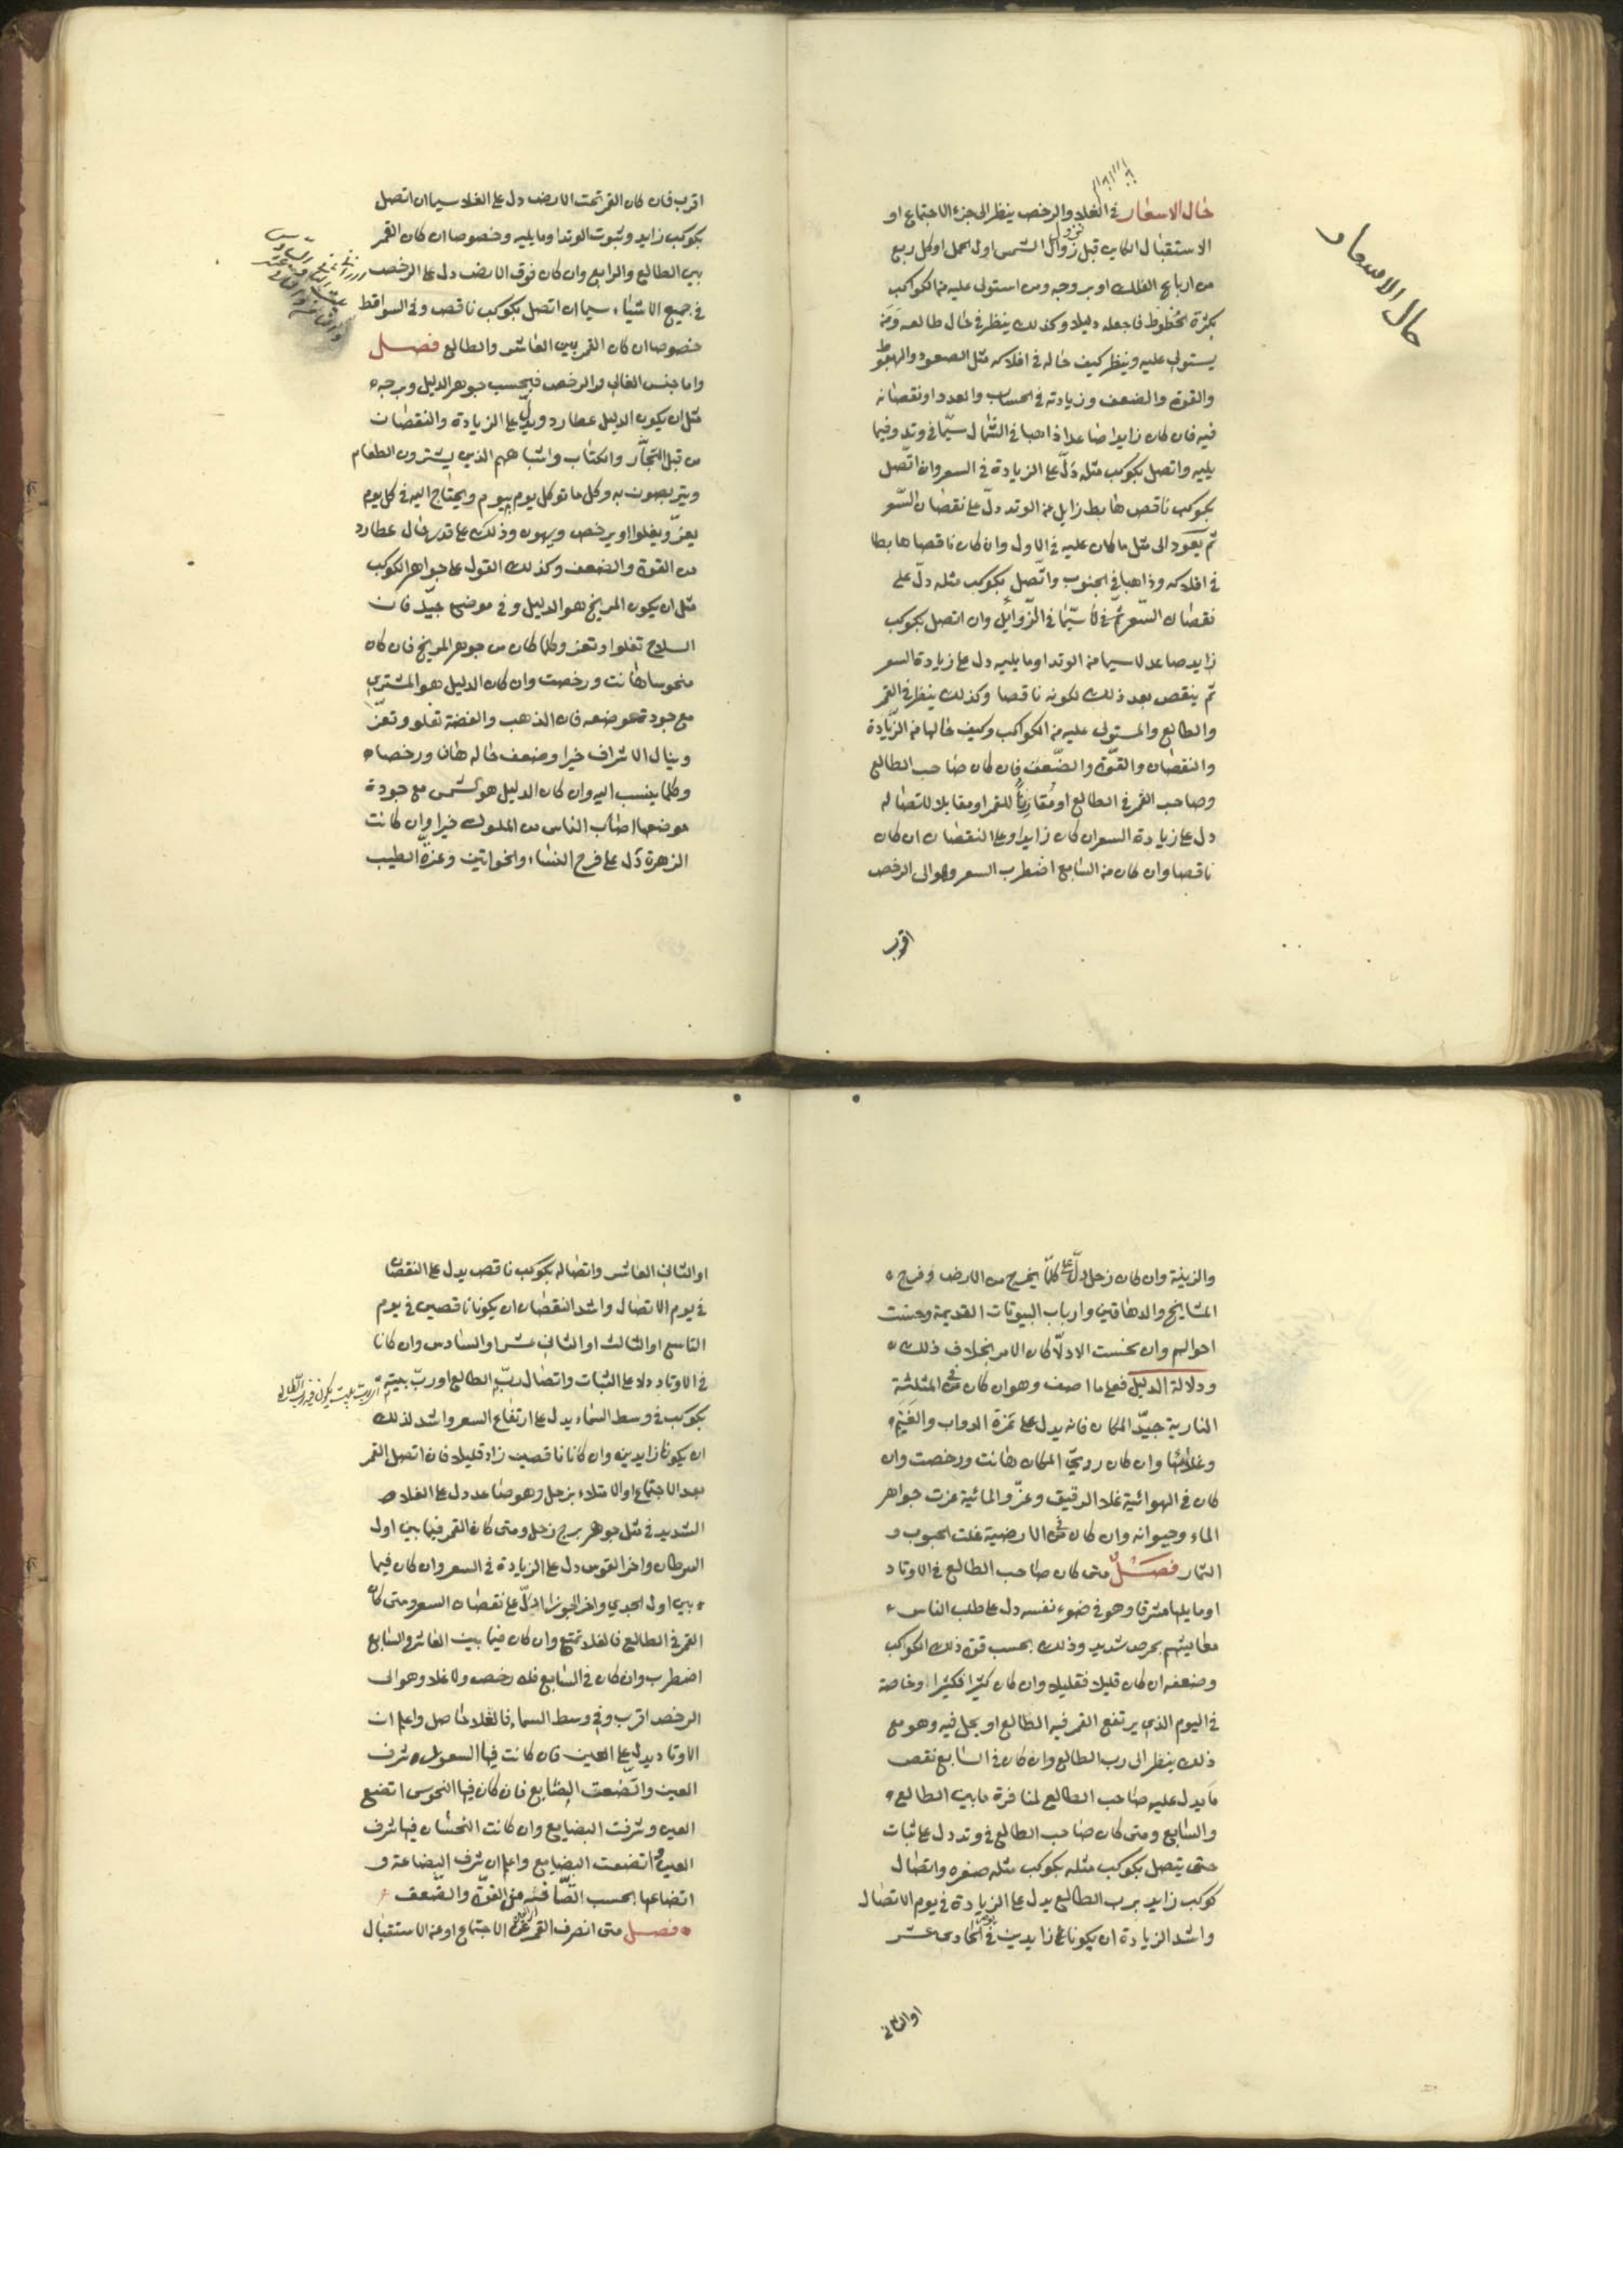 حال الاسعار
حال الاسعار في الغلاء والرخص ينظر الى جزء الاجتماع او
الاستقبال الكاين قبل نزول الشمس اول الحمل او كل ربع
من ارباع الفلك او بروجه ومن استولى عليه من الكواكب
بكثرة الحظوظ فاجعله دليلا وكذلك ينظر في حال طالعه ومن
يستولى عليه وينظر كيف حاله في افلاكه مثل الصعود والهبوط
والقوة والضعف وزيادته في الحساب والعدد او نقصانه
فيه فان كان زايدا صاعدا ذاهبا في الشمال سيّما في وتد وفيما
يليه واتصل بكوكب مثله دلّ على الزيادة في السعر وان اتصل
بكوكب ناقص هابط زايل من الوتد دلّ على نقصان السّعر
ثم يعود الى مثل ما كان عليه في الاول وان كان ناقصا هابطا
في افلاكه وذاهبا في الجنوب واتّصل بكوكب مثله دلّ على
نقصان السّعر سيّما في الزّوايل وان اتصل بكوكب
زايد صاعد لا سيما من الوتد او ما يليه دل على زيادة السعر
ثم ينقص بعد ذلك لكونه ناقصا وكذلك ينظر في القمر
والطالع والمستولى عليه من الكواكب وكيف حالها من الزّيادة
والنقصان والقوّة والضّعف فان كان صاحب الطالع
وصاحب القمر في الطالع او مقارنًا للقمر او مقابلا لاتصاله
دل على زيادة السعر ان كان زايدا وعلى النقصان ان كان
ناقصا وان كان من السابع اضطرب السعر وهو الى الرخص
اقرب
اقرب فان كان القمر تحت الارض دل على الغلاء سيما ان اتصل
بكوكب زايد وثبوت الوتد او ما يليه وخصوصا ان كان القمر
بين الطالع والرابع وان كان فوق الارض دل على الرخص
في جميع الاشياء سيما ان اتصل بكوكب ناقص وفي السواقط
خصوصا ان كان القمر بين العاشر والطالع فصل
واما جنس الغالي والرخص فبحسب جوهر الدليل وبرجه
مثل ان يكون الدليل عطارد ويدل على الزيادة والنقصان
من قبل التجّار والكتاب واشباههم الذين يشترون الطعام
ويتربصون به وكل ما توكل يوم بيوم ويحتاج اليه في كل يوم
يعزّ ويغلوا او يرخص ويهون وذلك على قدر حال عطارد
من القوة والضعف وكذلك القول على جواهر الكوكب
مثل ان يكون المريخ هو الدليل وفي موضع جيّد فان
السلاح تغلوا وتعز وكلما كان من جوهر المريخ فان كان
منحوسا هانت ورخصت وان كان الدليل هو المشتري
مع جودة موضعه فان الذهب والفضة تغلو وتعزّ
وينال الاشراف خيرا وضعف حاله هانا ورخصا
وكلما ينسب اليه وان كان الدليل هو شمس مع جودة
موضعها اصاب الناس من الملوك خيرا وان كانت
الزهرة دل على فرح النساء والخواتين وعزة الطيب
والزينة وان كان زحل دلّ على كلما يخرج من الارض وفرح
المشايخ والدهاقين وارباب البيوتات القديمة وحسنت
احوالهم وان نحست الادلّا كان الامر بخلاف ذلك
ودلالة الدليل فعلى ما اصف وهو ان كان في المثلثة
النارية جيّد المكان فانه يدل على عزة الدواب والغنم
وغلائها وان كان رديّ المكان هانت ورخصت وان
كان في الهوائية غلا الدقيق وعزّ والمائية عزت جواهر
الماء وحيوانه وان كان في الارضية غلت الحبوب و
الثمار فصل متى كان صاحب الطالع في الاوتاد
او ما يليها مشرقا وهو في ضوء نفسه دل على طلب الناس
معايشهم بحرص شديد وذلك بحسب قوة ذلك الكواكب
وضعفه ان كان قليلا فقليلا وان كان كثيرا فكثيرا وخاصة
في اليوم الذي يرتفع القمر فيه الطالع او يحل فيه وهو مع
ذلك ينظر الى رب الطالع وان كان في السابع نقص
ما يدل عليه صاحب الطالع لمنافرة ما بين الطالع
والسابع ومتى كان صاحب الطالع في وتد دل على ثبات
حتى يتصل بكوكب مثله بكوكب مثله صغره واتصال
كوكب زايد برب الطالع يدل على الزيادة في يوم الاتصال
واشد الزيادة ان يكونا زايدين في الحادى عشر
او الثاني
او الثاني العاشر واتصاله بكوكب ناقص يدل على النقصان
في يوم الاتصال واشد النقصان ان يكونا ناقصين في يوم
التاسع او الثالث او الثاني عشر او السادس وان كانا
في الاوتاد دلا على الثبات واتصال ربّ الطالع او ربّ بيته
بكوكب في وسط السماء يدل على ارتفاع السعر واشد لذلك
ان يكونا زايدين وان كانا ناقصين زاد قليلا فان اتصل القمر
بعد الاجتماع او الامتلاء بزحل وهو صاعد دل على الغلاء
الشديد في مثل جوهر برج زحل ومتى كان القمر فيما بين اول
السرطان واخر القوس دل على الزيادة في السعر وان كان فيما
بين اول الجدي واخر الجوزا دلّ على نقصان السعر ومتى كان
القمر في الطالع فالغلا تمتع وان كان فيما بين العاشر والسابع
اضطرب وان كان في السابع فلا رخص ولا غلا وهو الى
الرخص اقرب وفي وسط السماء فالغلا حاصل واعلم ان
الاوتاد يدل على العين فان كانت فيها السعود شرف
العين واتضعت البضايع فان كان فيها النحوس اتضع
العين وشرفت البضايع وان كانت النحسان فيها شرف
العين واتضعت البضايع واعلم ان شرف البضاعة و
اتضاعها بحسب من القوّة والضّعف
فصل متى انصرف القمر عن الاجتماع او من الاستقبال